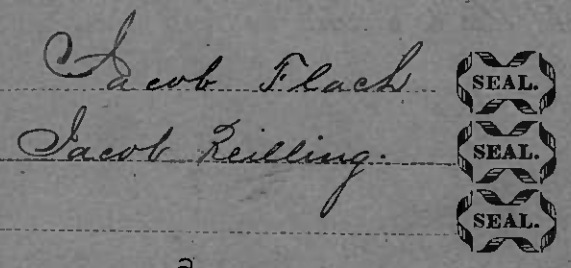 Jacob Flach SEAL.
Jacob Zeilling. SEAL.
SEAL.